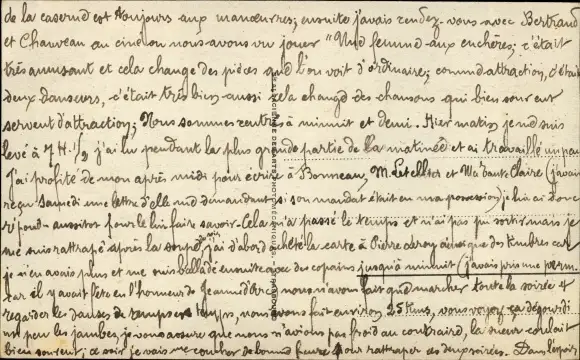 de la caserne est toujours aux manœuvres; ensuite j'avais rendez-vous avec Bertrand
et Chauveau au cinéma nous avons vu jouer "Une femme aux enchères; c'était
très amusant et cela change des pièces que l'on voit d'ordinaire; comme attraction, c'était
deux danseurs, c'était très bien aussi cela change des chansons qui bien souvent
servent d'attraction; Nous sommes rentrés à minuit et demi. Hier matin je me suis
levé à 7 H. 1/2 j'ai lu pendant la plus grande partie de la matinée et ai travaillé un peu
J'ai profité de mon après midi pour écrire à Bonneau, M. Letellier et Me Claire (j'avais
reçu Samedi une lettre d'elle me demandant si son mandat était en ma possession) je lui ai donc
répondu aussitôt pour le lui faire savoir. Cela m'a passé le temps et n'ai pas pu sortir mais je
me suis rattrapé après la soupe j'ai d'abord acheté la carte à Pierre ainsi que des timbres car
je n'en avais plus et me suis balladé ensuite avec des copains jusqu'à minuit (j'avais pris une perm.
car il y avait fête en l'honneur de Jeanne d'Arc nous n'avons fait que marcher toute la soirée et
regarder les danses de temps en temps, nous avons fait environ 25 Kms, vous voyez ça dégourdi
un peu les jambes, je vous assure que nous n'avions pas froid au contraire, la sueur coulait
bien souvent; ce soir je vais me coucher de bonne heure pour rattraper ces deux soirées. Dans l'espoir